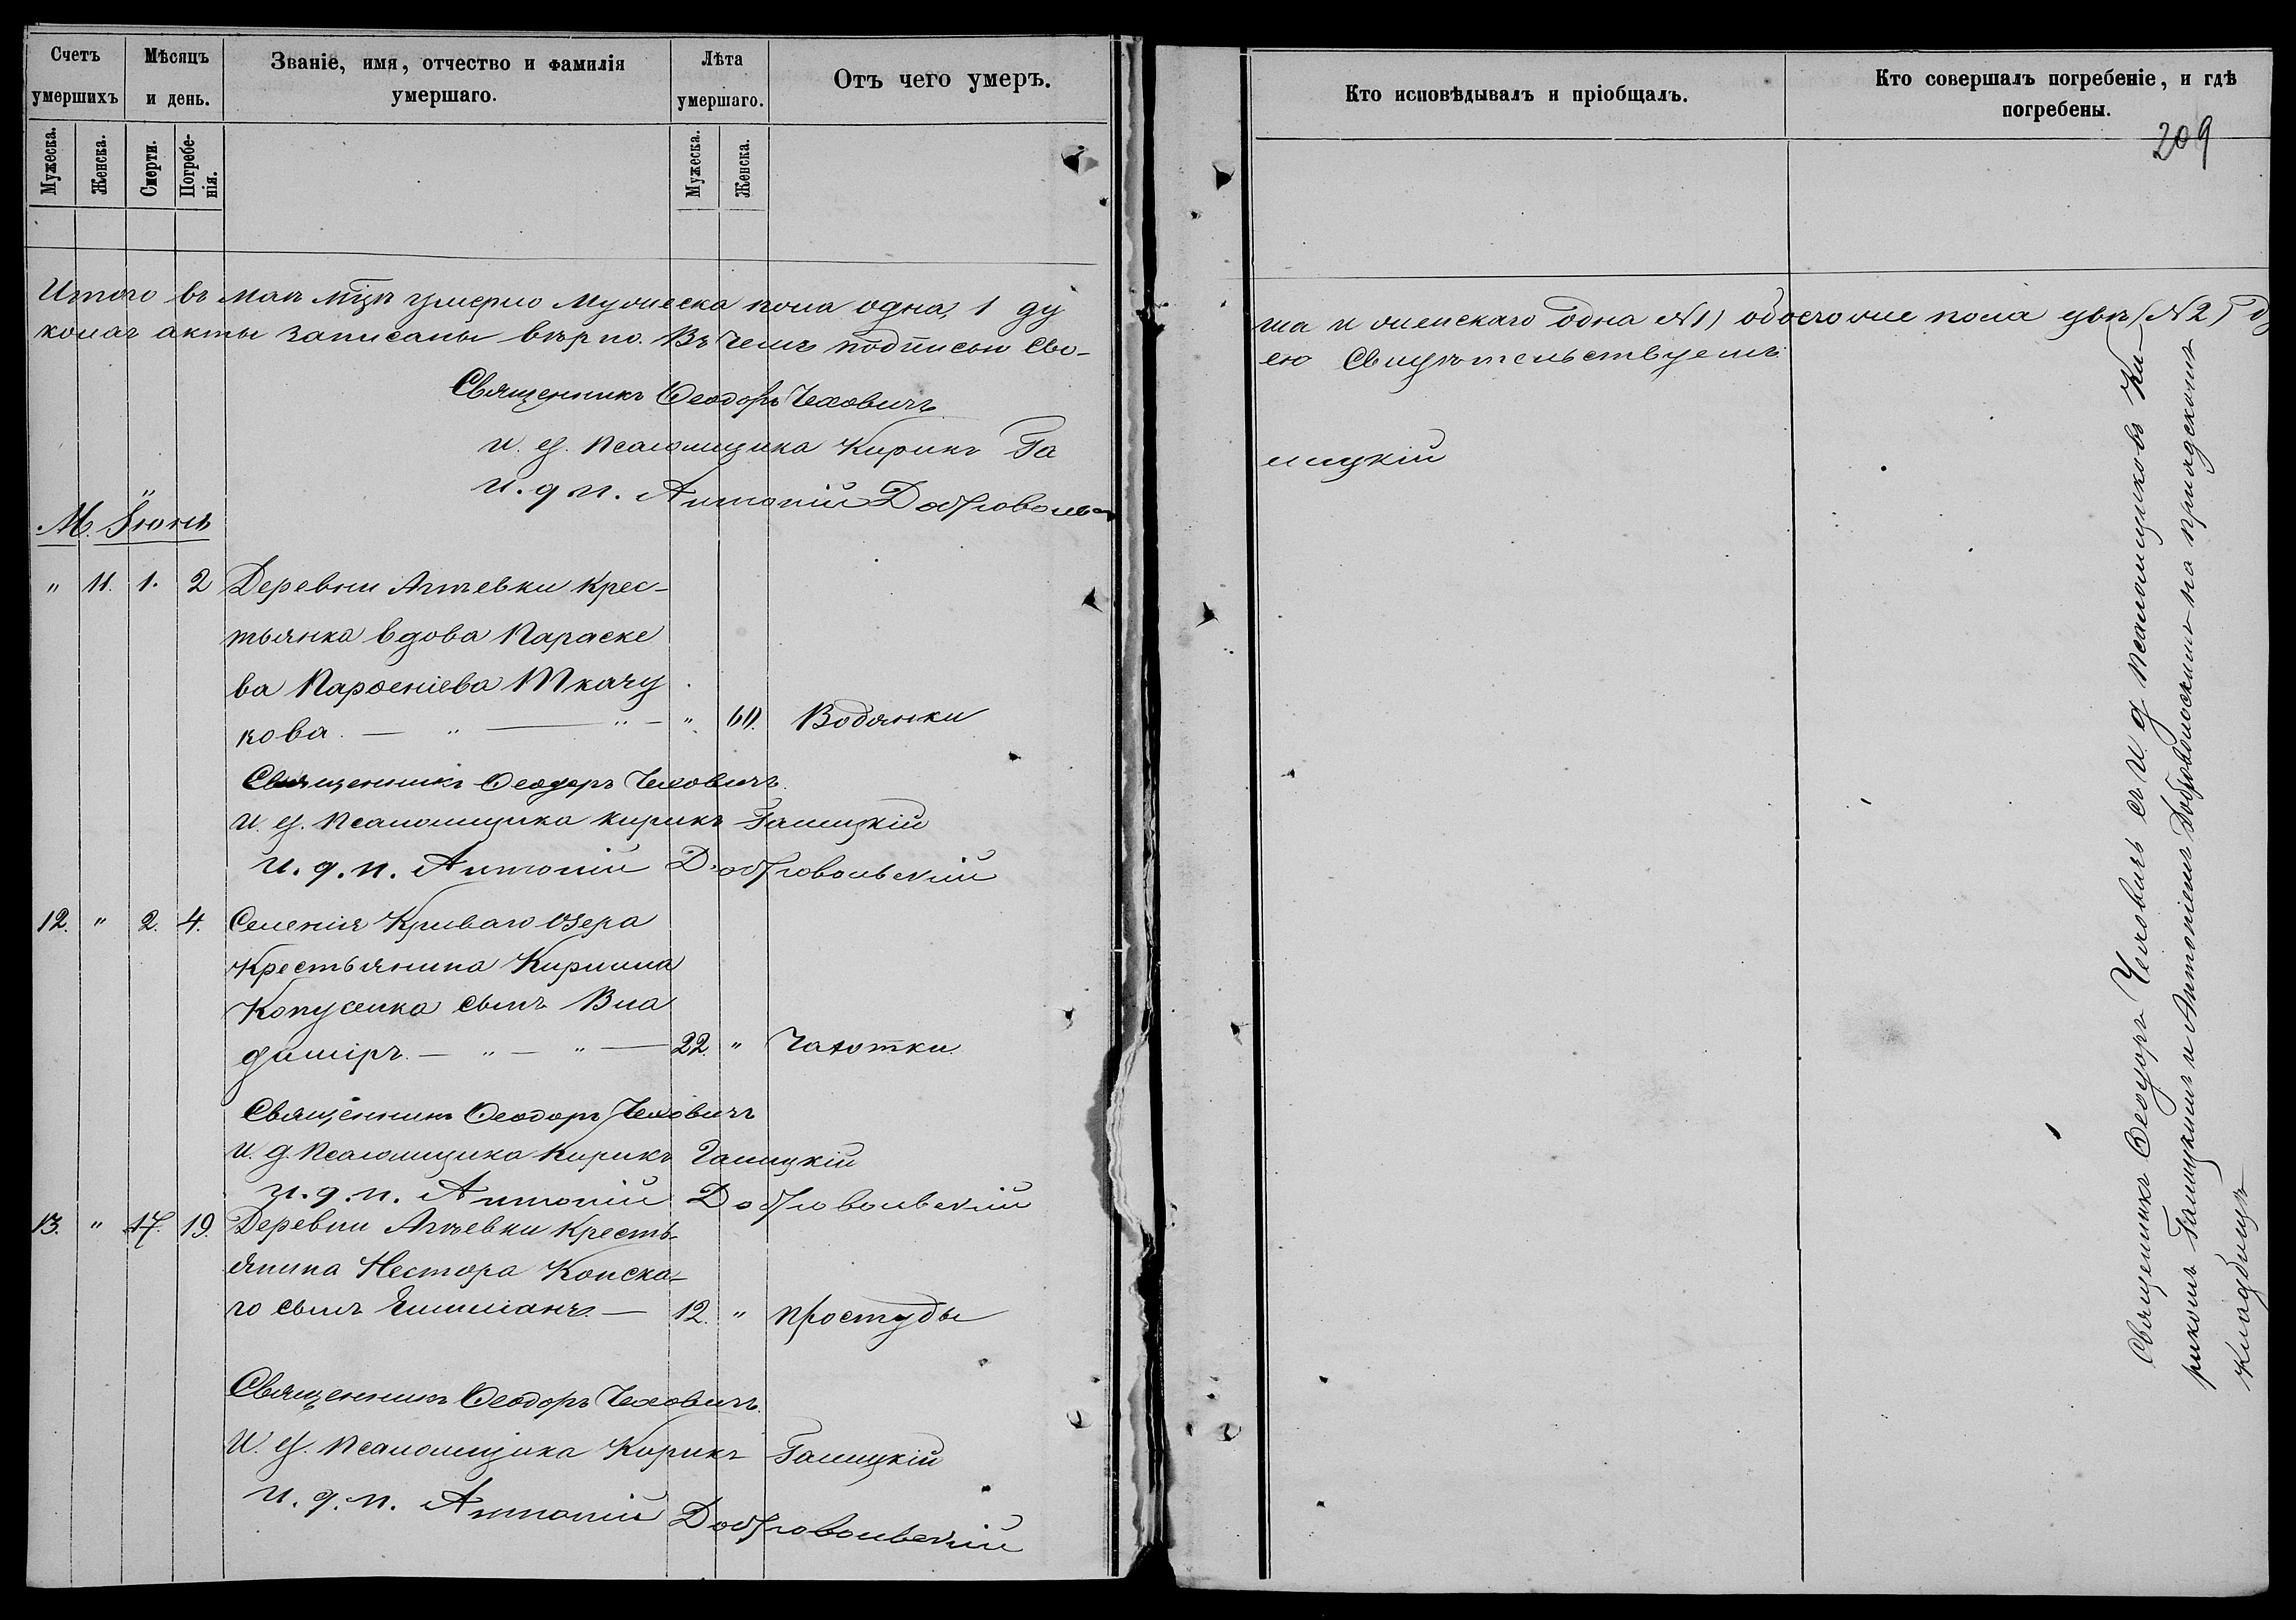 Счетъ умершихъ
Мѣсяцъ и день.
Званіе, имя, отчество и фамилія умершаго.
Лѣта умершаго.
Отъ чего умеръ.
Кто исповѣдывалъ и пріобщалъ.
Кто совершалъ погребеніе, и гдѣ погребены.
Мужеска.
Женска.
Смерти.
Погребе-
нія.
Мужеска.
Женска.
209
Итого въ маѣ мцѣ умерло мужеска пола одна, 1 ду
ша и женскаго одна №1) обоего же пола двѣ (№2) д
акты записаны вѣрно. Въ чемъ подписью сво-
ею свидѣтельствуемъ
Священникъ Ѳеодоръ Чеховичъ
и. д. псаломщика Кирикъ Га
лицкій
и. д. п. Антоній Добровольс
М. Іюнь
" 11. 1. 2 Деревни Крес-
тьянка вдова Параске
ва Парѳеніева Ткачу
кова. — " — " — " 60. Водянки
Священникъ Ѳеодоръ Чеховичъ.
и. д. псаломщика Кирикъ Галицкій
и. д. п. Антоній Добровольскій
12. " 2. 4. Селенія Криваго Озера
Крестьянина Кирилла
сынъ Вла
диміръ. — " — " — 22. " Чахотки.
Священникъ Ѳеодоръ Чеховичъ
и. д. псаломщика Кирикъ Галицкій
и. д. п. Антоній Добровольскій
13. " 17. 19. Деревни Кресть-
янина Нестора Конска-
го сынъ — 12. " простуды
Священникъ Ѳеодоръ Чеховичъ.
и. д. псаломщика Кирикъ Галицкій
и. д. п. Антоній Добровольскій
Священникъ Ѳеодоръ Чеховичъ съ и д псаломщиковъ Ки-
рикомъ Галицкимъ и Антоніемъ Добровольскимъ на приходскомъ
кладбищѣ